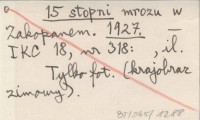 15 stopni mrozu w
Zakopanem. 1927. —
IKC 18, nr 318: , il.
Tylko fot. (krajobraz
zimowy).